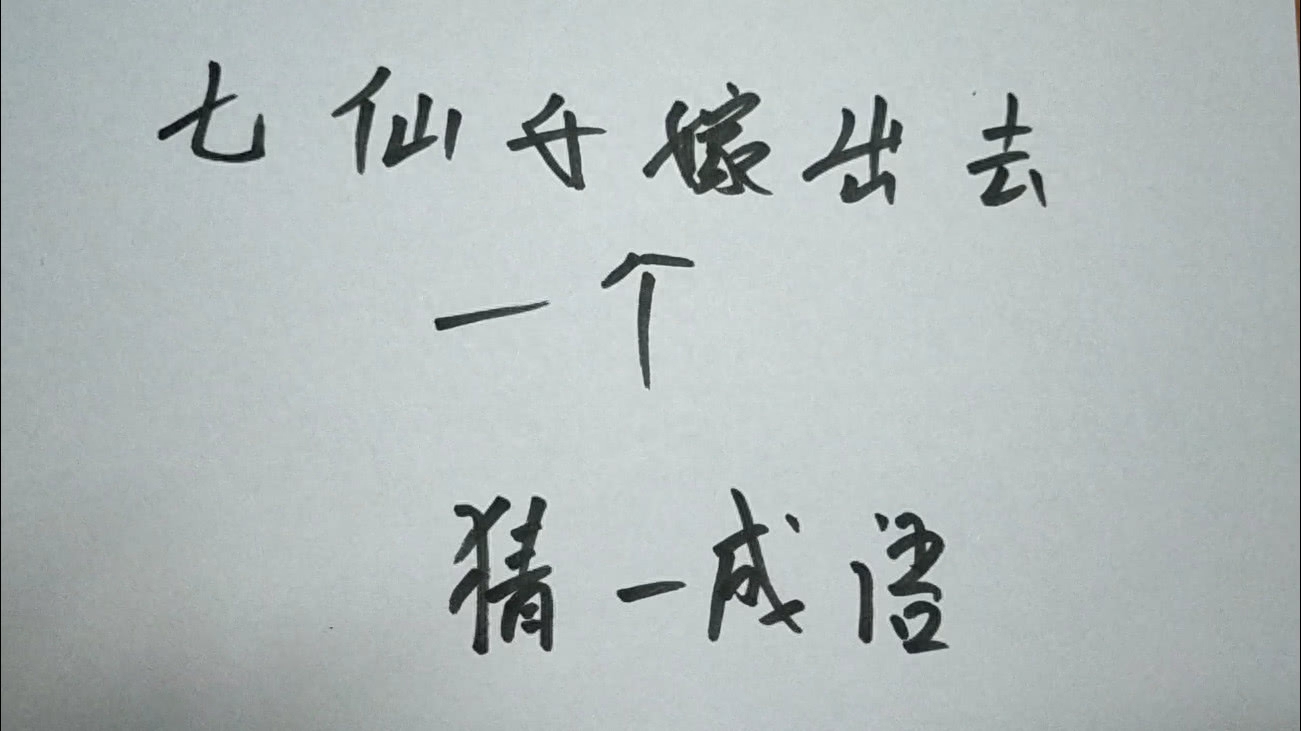 七仙女嫁出去
一个
猜一成语